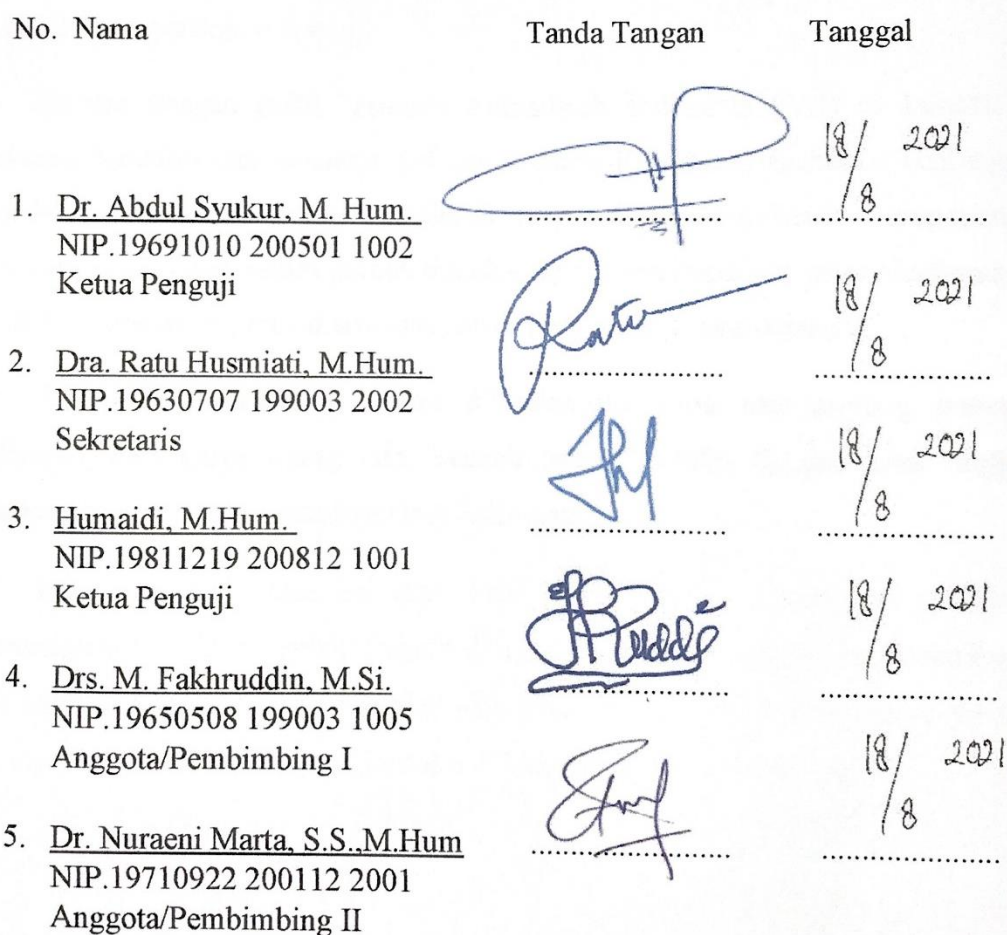 No. Nama Tanda Tangan Tanggal
18/8 2021
1. Dr. Abdul Syukur, M. Hum. ....................
NIP.19691010 200501 1002
Ketua Penguji
18/8 2021
2. Dra. Ratu Husmiati, M.Hum. ....................
NIP.19630707 199003 2002
Sekretaris
18/8 2021
3. Humaidi, M.Hum. ....................
NIP.19811219 200812 1001
Ketua Penguji
18/8 2021
4. Drs. M. Fakhruddin, M.Si. ....................
NIP.19650508 199003 1005
Anggota/Pembimbing I
18/8 2021
5. Dr. Nuraeni Marta, S.S.,M.Hum ....................
NIP.19710922 200112 2001
Anggota/Pembimbing II